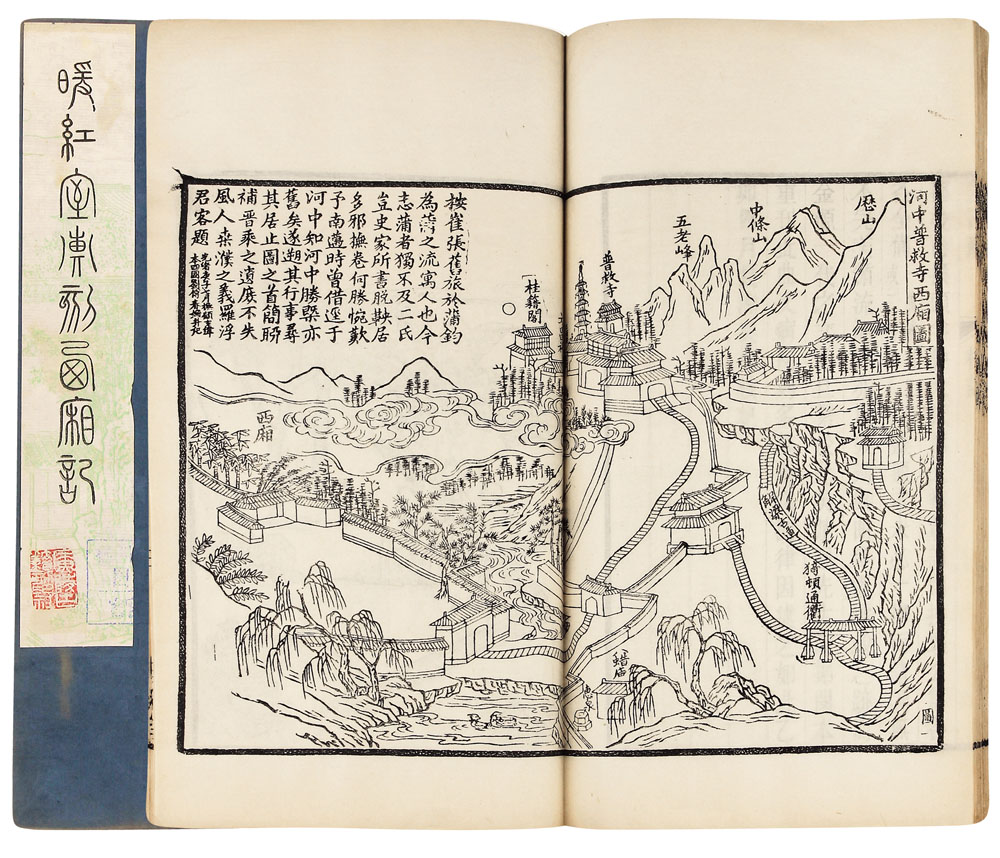 暖紅室彙刻西廂記
河中普救寺西廂圖
歷山
中條山
五老峰
普救寺
桂籍閣
猗頓通衢
圖一
西廂
按崔張舊旅於蒲鈞
為蒲之流寓人也今
志蒲者獨不及二氏
豈史家所書脫鞅居
多邪撫卷何勝惋歎
予南邁時曾借逕于
河中知河中勝槩亦
舊矣遂遡其行事尋
其居止圖之首簡昉
補晉乘之遺庶不失
風人桑濮之義羅浮
君客題